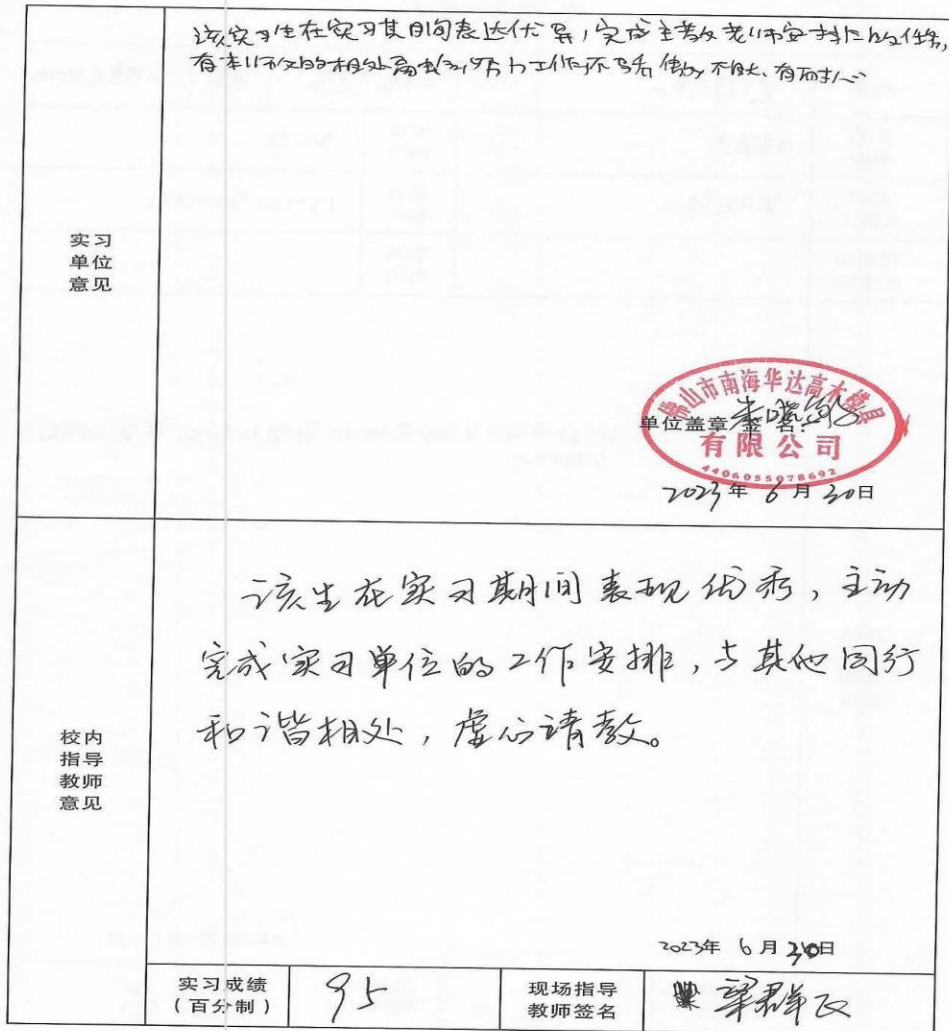 该实习生在实习其日间表达优异,完成主教老师安排的任务,
有
实习
单位
意见
佛山市南海华达高木模具
有限公司
4406055078692
单位盖章 签名:
2023年 6月 30日
该生在实习期间表现优秀,主动
完成实习单位的工作安排,与其他同行
和谐相处,虚心请教。
校内
指导
教师
意见
2023年 6月 30日
实习成绩
(百分制)
95
现场指导
教师签名